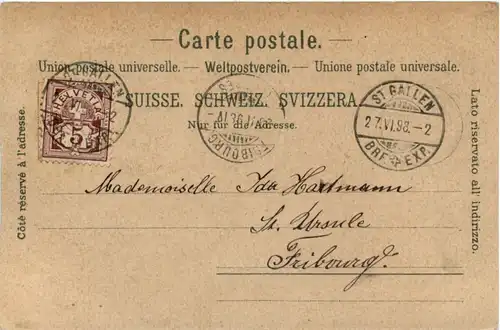 — Carte postale. —
Union postale universelle. — Weltpostverein. — Unione postale universale.
SUISSE. SCHWEIZ. SVIZZERA.
Nur für die Adresse.
Côté réservé à l'adresse.
Lato riservato all indirizzo.
HELVETIA
5
ST. GALLEN
FRIBOURG
ST. GALLEN
27.VI.98.-2
BRF. EXP.
Mademoiselle Ida Hartmann
St. Ursule
Fribourg.